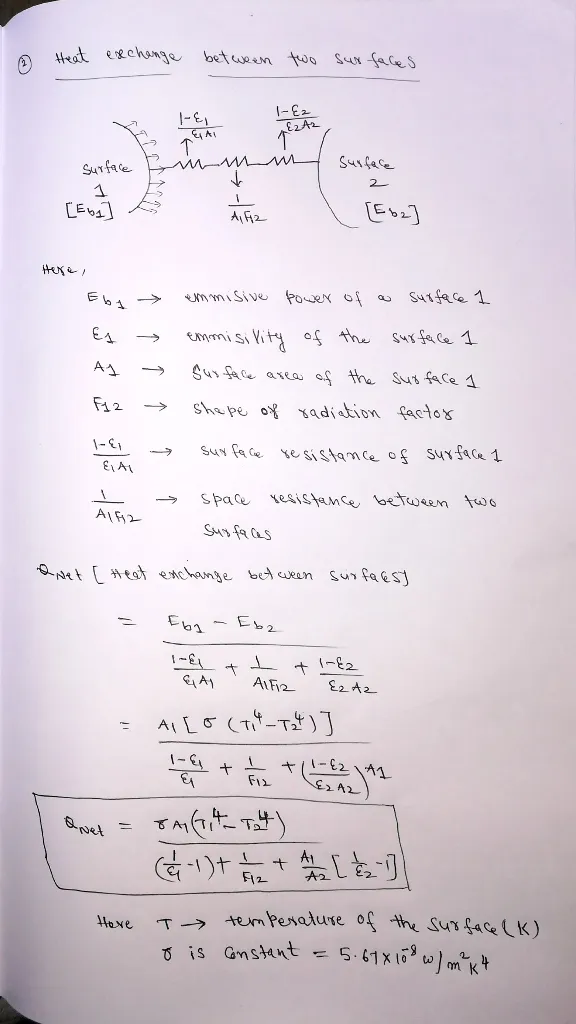 ② Heat exchange between two surfaces
1-ε1 / ε1A1
1-ε2 / ε2A2
Surface 1 [Eb1]
1 / A1F12
Surface 2 [Eb2]
Here,
Eb1 → emmisive power of a surface 1
ε1 → emmisivity of the surface 1
A1 → Surface area of the surface 1
F12 → shape or radiation factor
1-ε1 / ε1A1 → surface resistance of surface 1
1 / A1F12 → space resistance between two
surfaces
QNet [Heat exchange between surfaces]
= Eb1 - Eb2 / 1-ε1 / ε1A1 + 1 / A1F12 + 1-ε2 / ε2A2
= A1[σ(T1^4-T2^4)] / 1-ε1 / ε1 + 1 / F12 + (1-ε2 / ε2A2)A1
QNet = σA1(T1^4-T2^4) / (1/ε1 -1) + 1/F12 + A1/A2 [1/ε2 -1]
Here T → temperature of the surface (K)
σ is constant = 5.67x10^-8 w/m^2K4